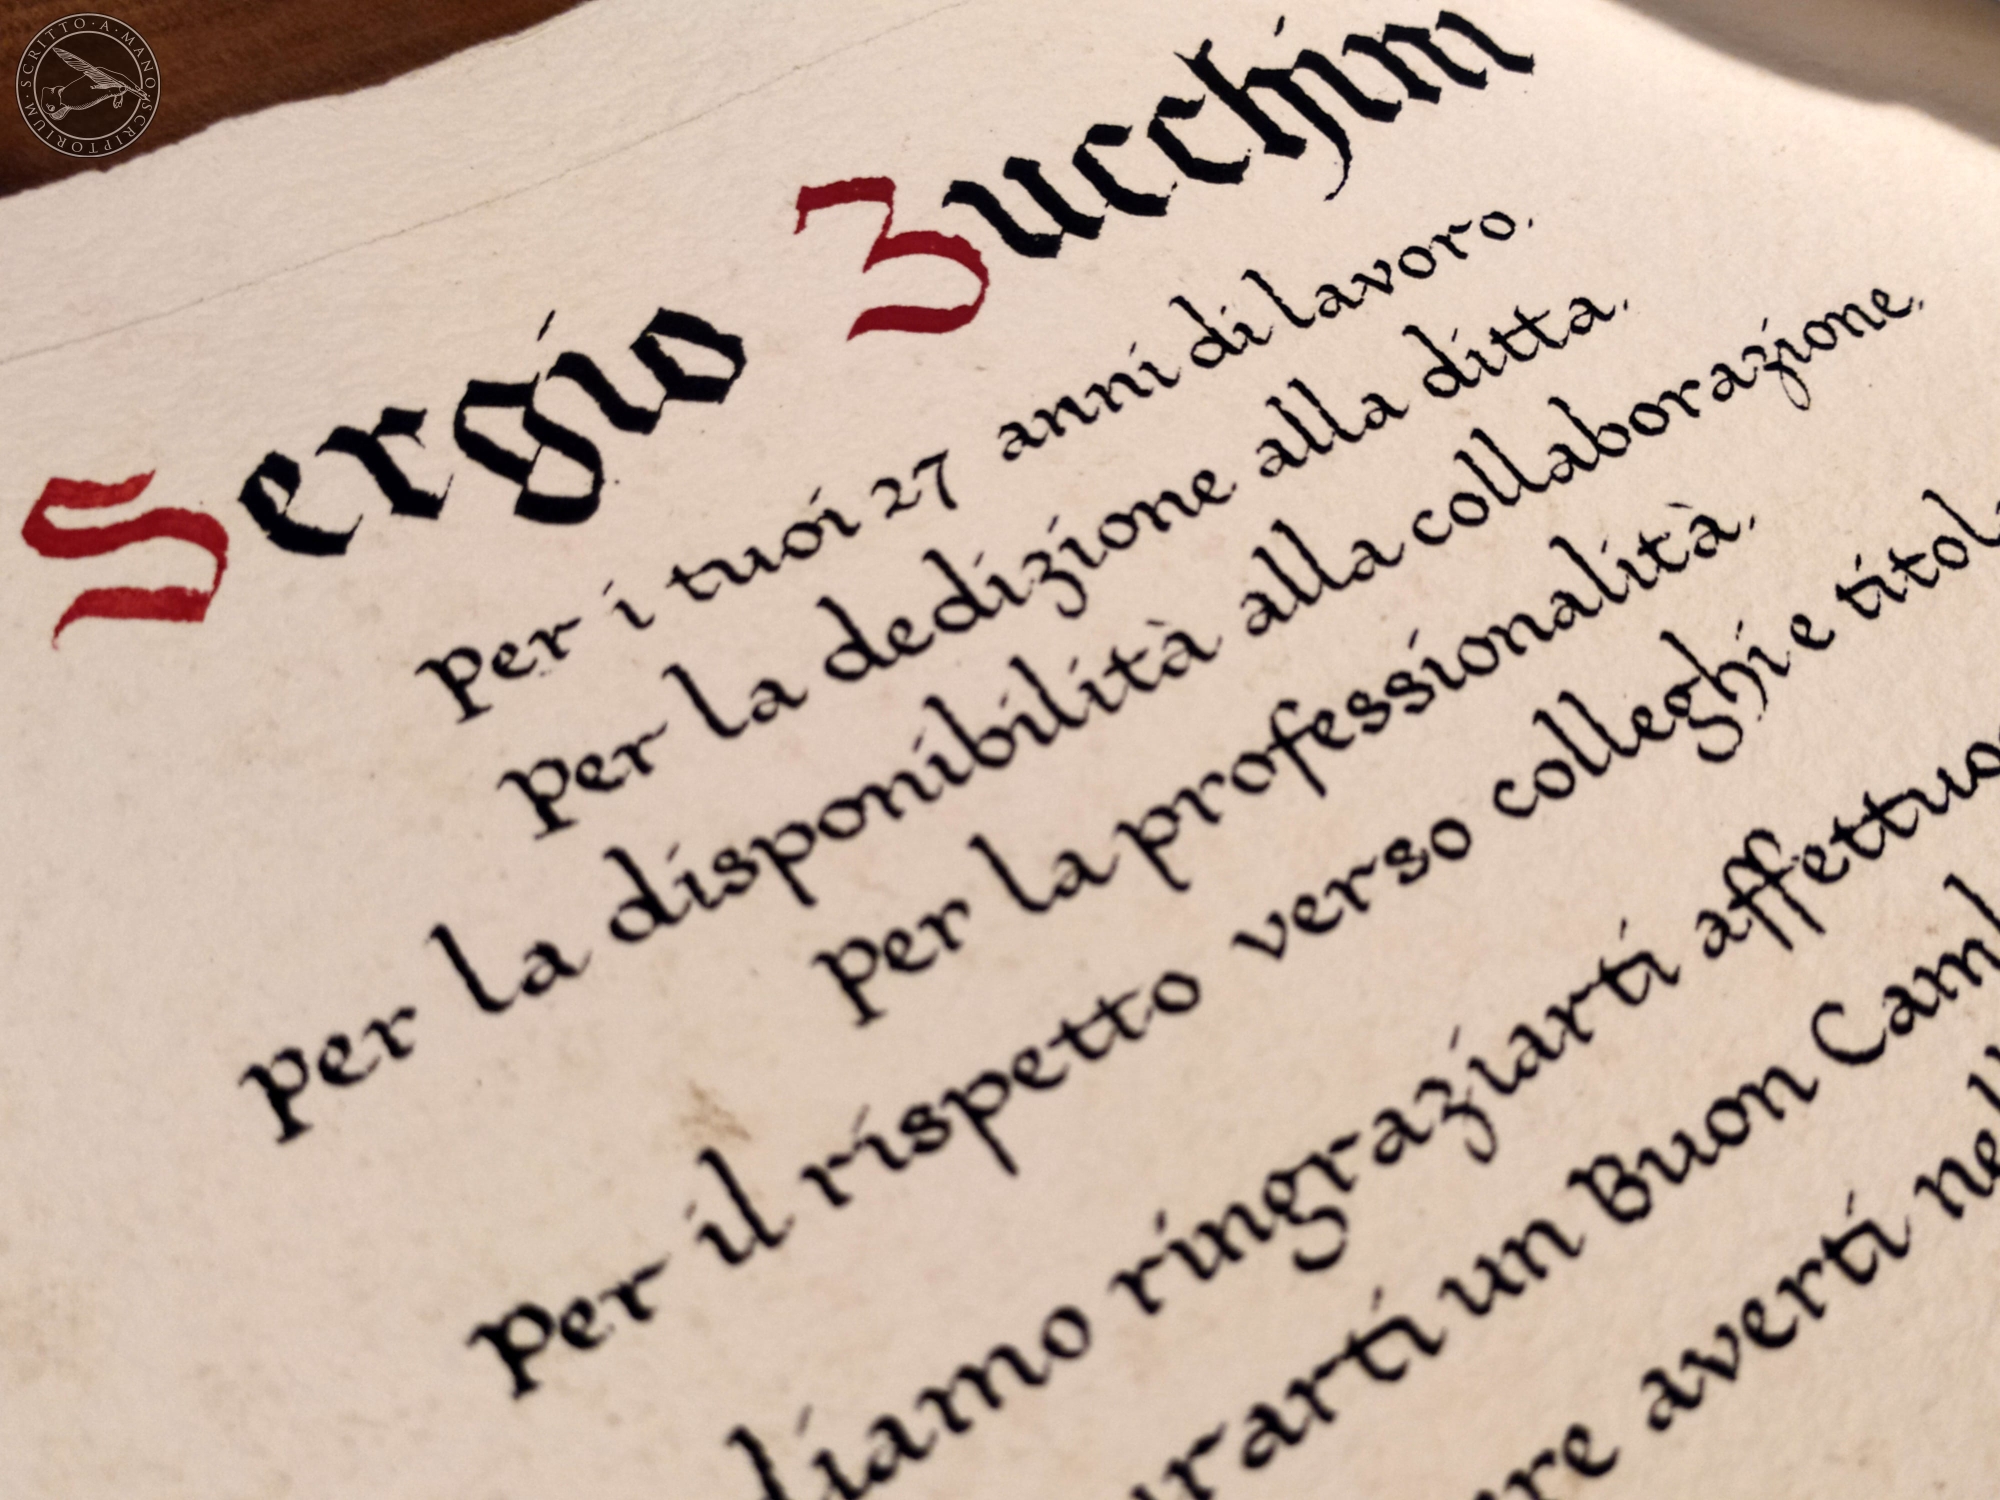 SCRITTO · A · MANO · SCRIPTORIUM ·
Sergio Zucchini
Per i tuoi 27 anni di lavoro.
Per la dedizione alla ditta.
Per la disponibilità alla collaborazione.
Per la professionalità.
Per il rispetto verso colleghi e
ringraziarti
un Buon
averti